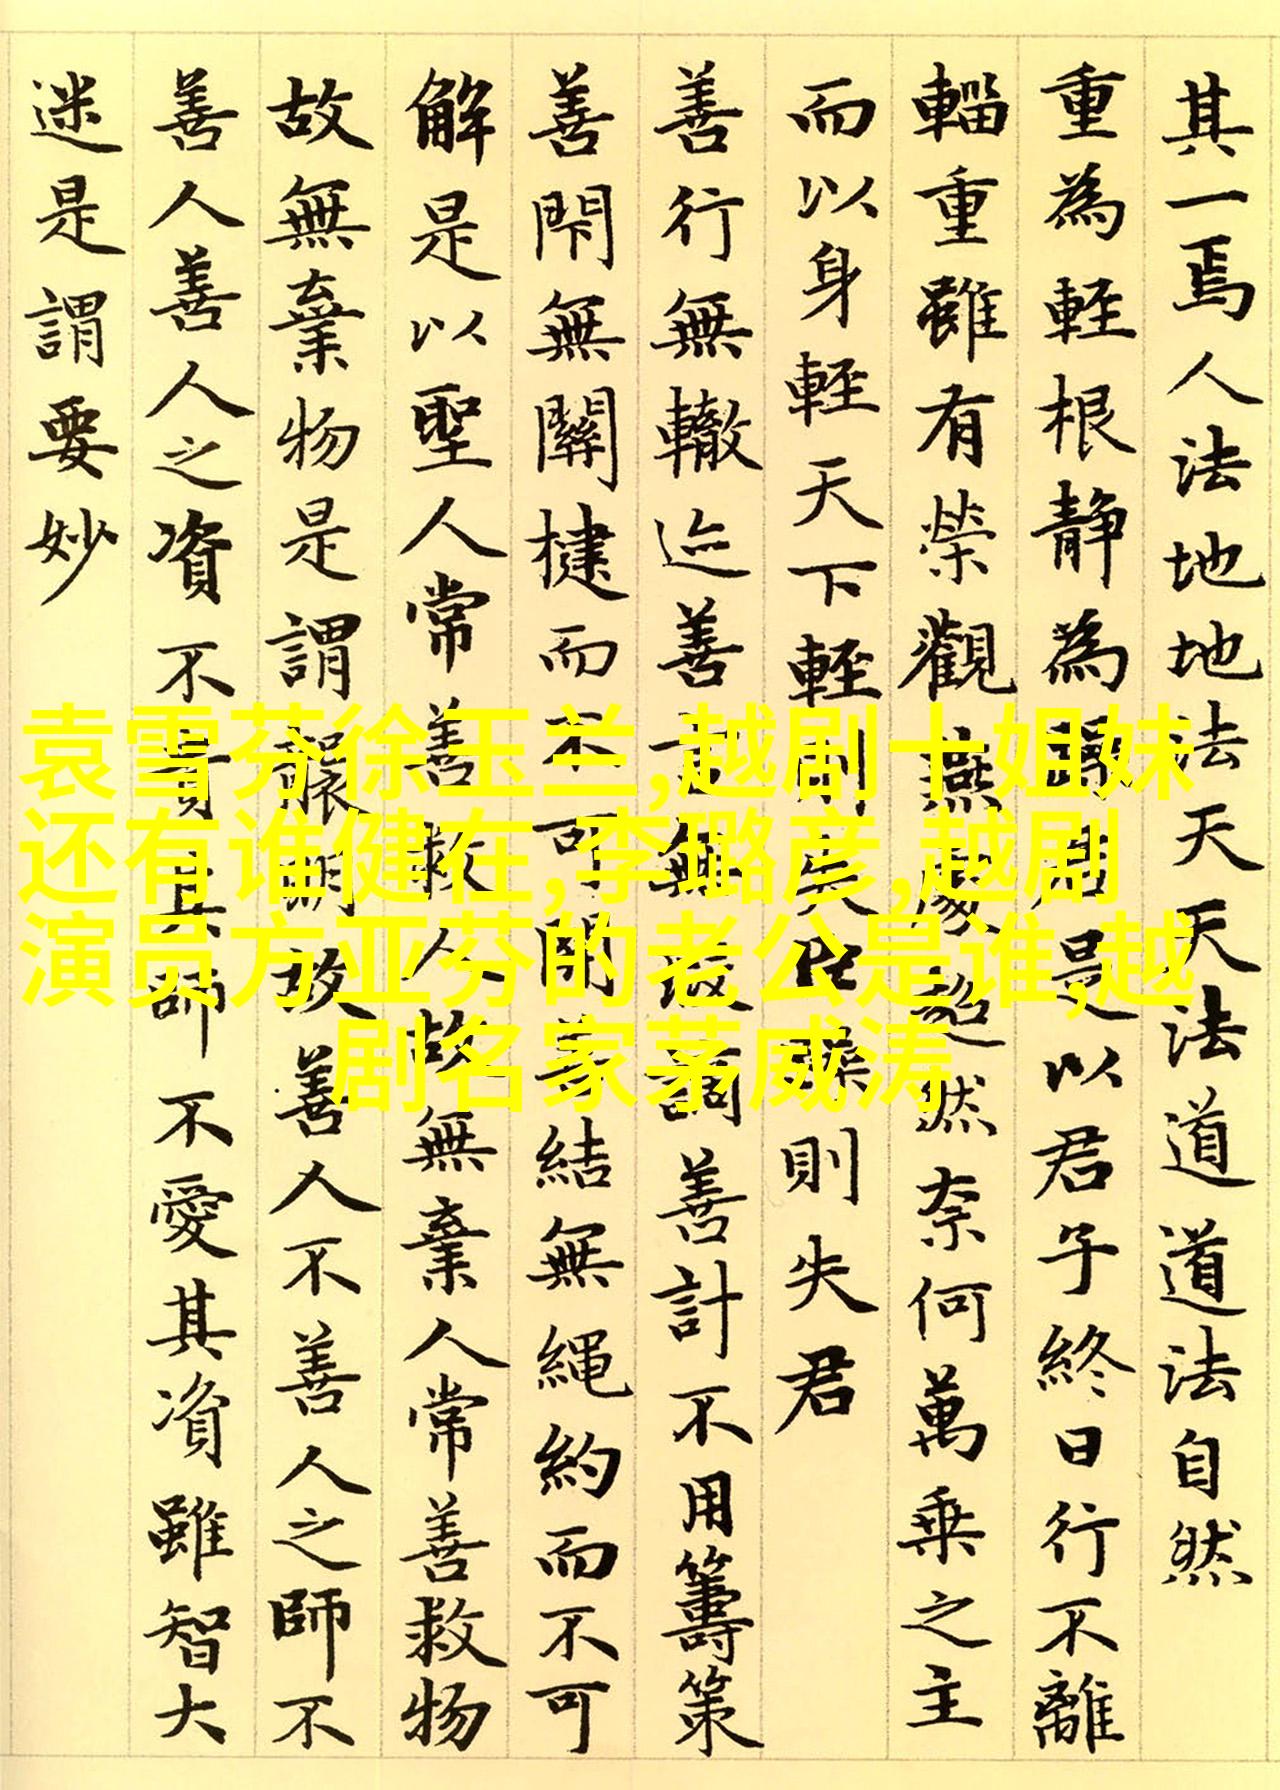 其一焉人法地地法天天法道道法自然
重為輕根靜為躁君是以君子終日行不離
輜重雖有榮觀燕處超然奈何萬乘之主
而以身輕天下輕則失臣躁則失君
善行無轍迹善言無瑕謫善計不用籌策
善閇無關楗而不可開善結無繩約而不可
解是以聖人常善救人故無棄人常善救物
故無棄物是謂襲明故善人不善人之師不
善人善人之資不貴其師不愛其資雖智大
迷是謂要妙
袁雪芬徐玉兰,越剧十姐妹
还有谁健在,李璐彦,越剧
演员方亚芬的老公是谁,越
剧名家茅威涛